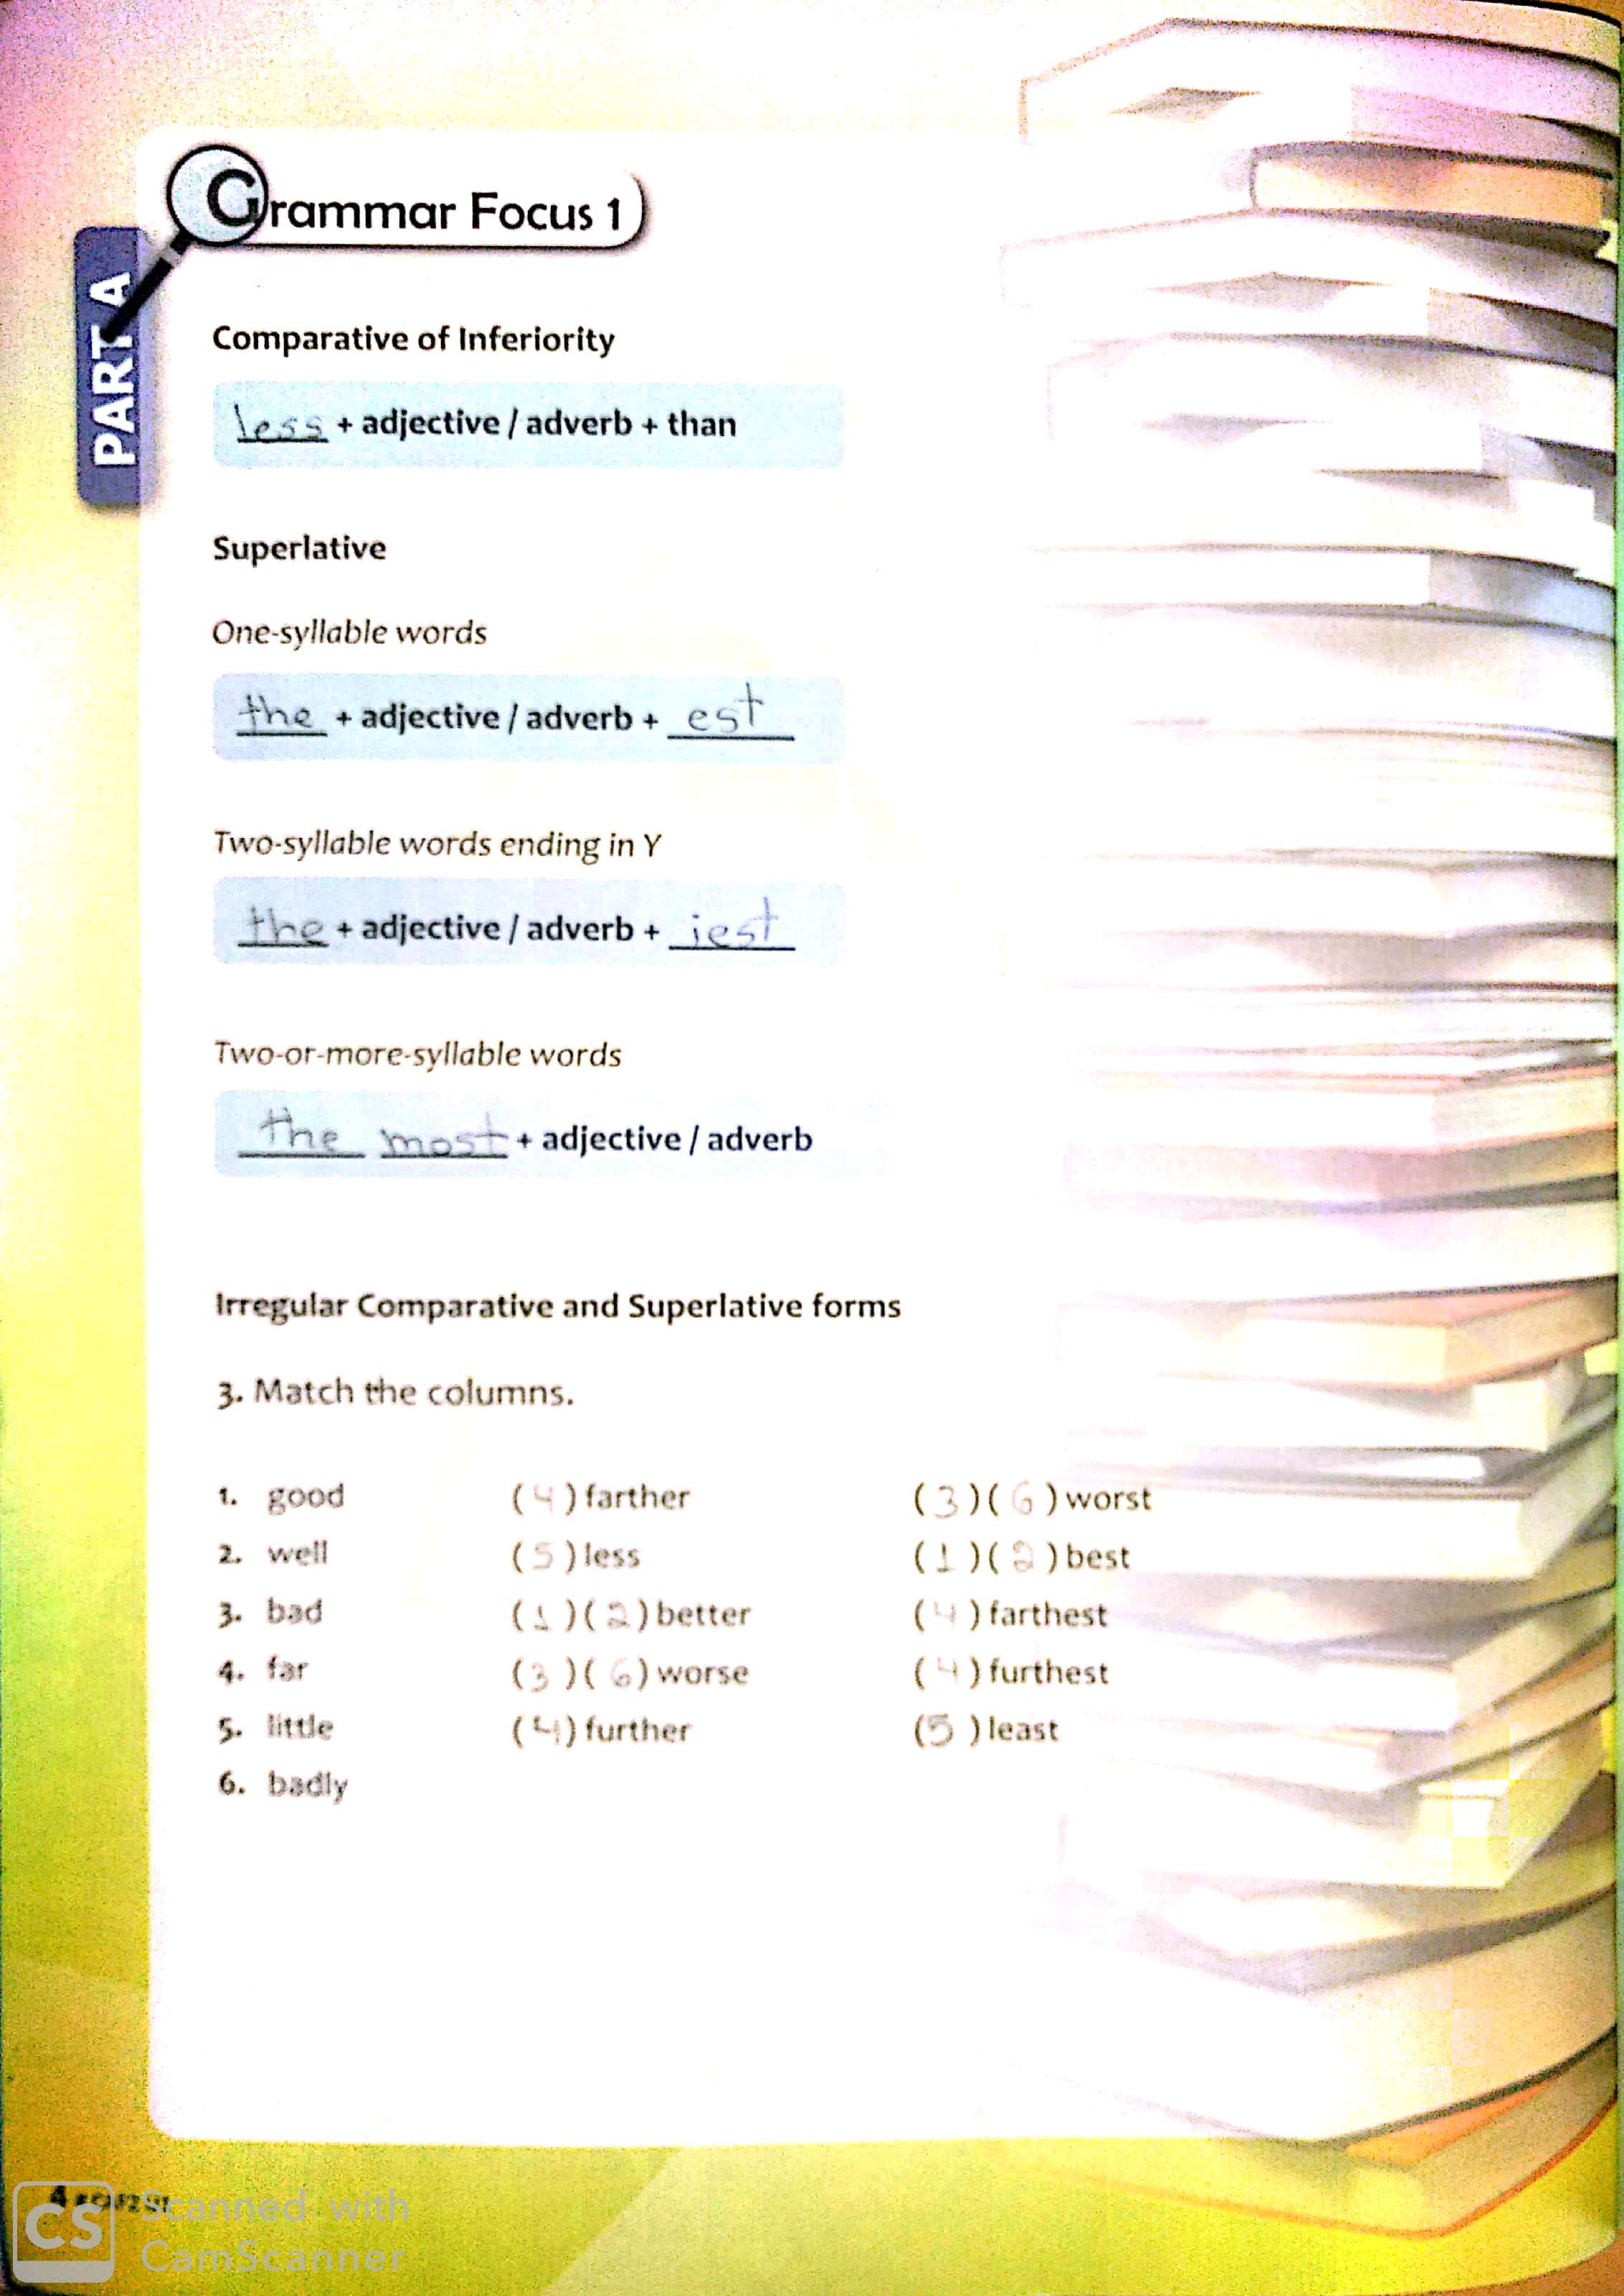 PART A
Grammar Focus 1
Comparative of Inferiority
less + adjective / adverb + than
Superlative
One-syllable words
the + adjective / adverb + est
Two-syllable words ending in Y
the + adjective / adverb + iest
Two-or-more-syllable words
the most + adjective / adverb
Irregular Comparative and Superlative forms
3. Match the columns.
1. good (4) farther (3)(6) worst
2. well (5) less (1)(2) best
3. bad (1)(2) better (4) farthest
4. far (3)(6) worse (4) furthest
5. little (4) further (5) least
6. badly
4
CS Scanned with
CamScanner